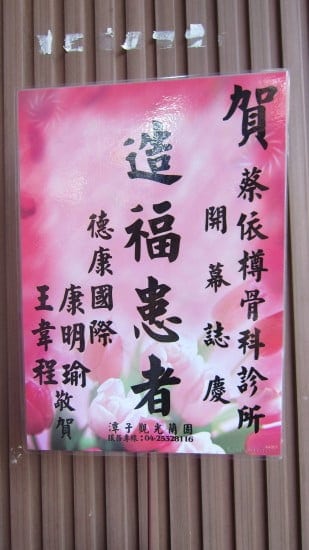 賀
蔡依樽骨科診所
開幕誌慶
造福患者
德康國際
康明瑜
王韋程
敬賀
潭子觀光蘭園
服務專線:04-25328116